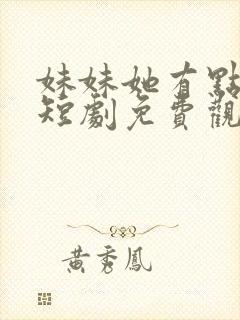 妹妹她有點
短劇免費觀
黃秀鳳